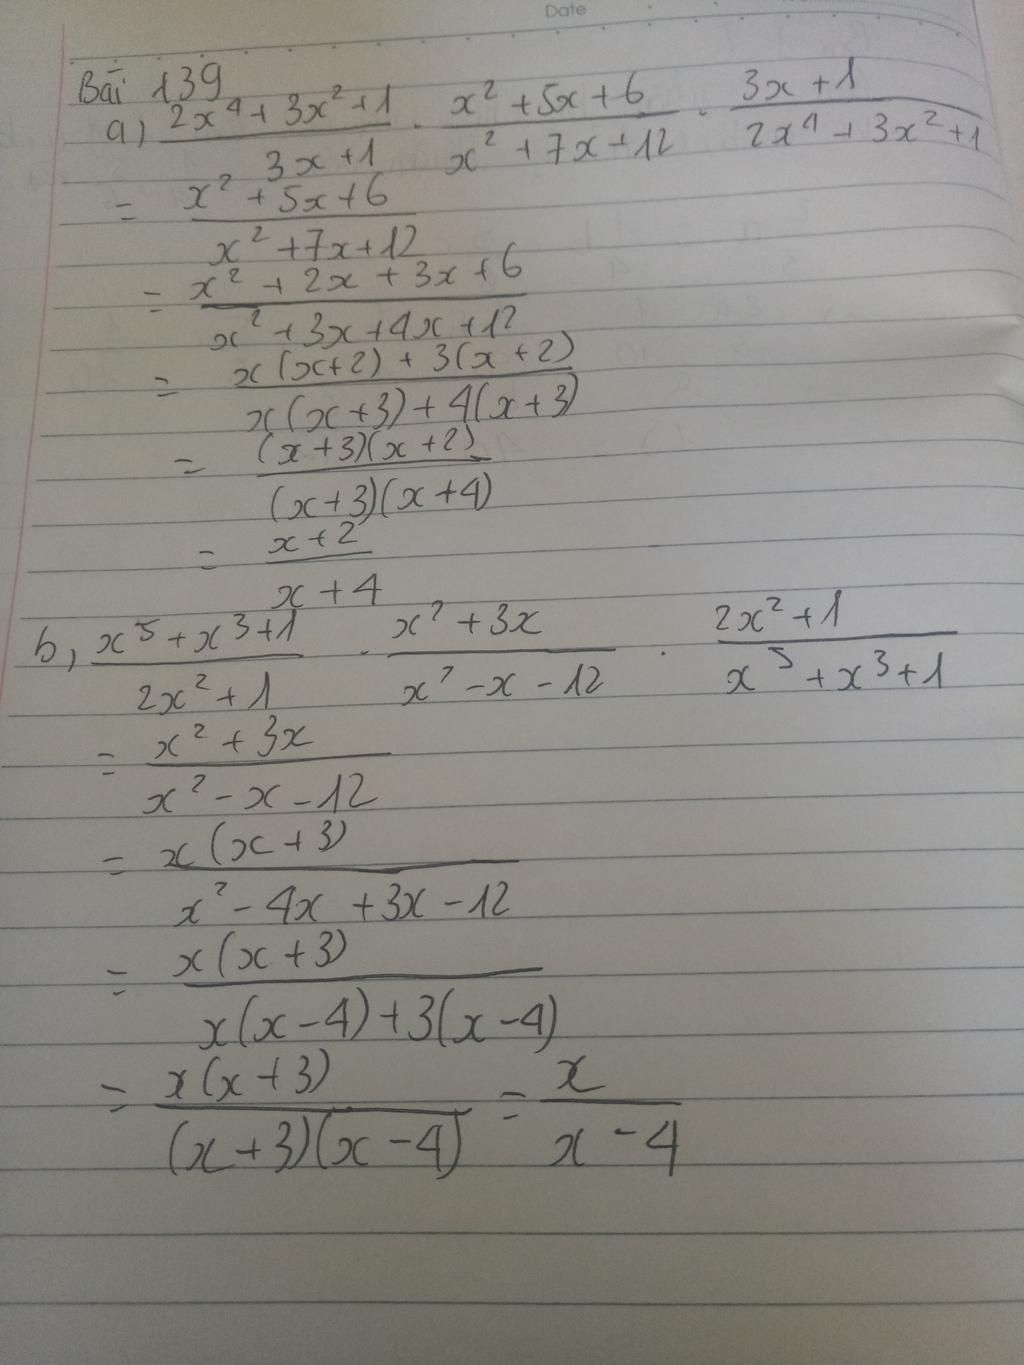 Date
Bài 139
a, (2x⁴ + 3x² + 1)/(3x + 1) · (x² + 5x + 6)/(x² + 7x + 12) · (3x + 1)/(2x⁴ + 3x² + 1)
= (x² + 5x + 6)/(x² + 7x + 12)
= (x² + 2x + 3x + 6)/(x² + 3x + 4x + 12)
= (x(x + 2) + 3(x + 2))/(x(x + 3) + 4(x + 3))
= ((x + 3)(x + 2))/((x + 3)(x + 4))
= (x + 2)/(x + 4)
b, (x⁵ + x³ + 1)/(2x² + 1) · (x² + 3x)/(x² - x - 12) · (2x² + 1)/(x⁵ + x³ + 1)
= (x² + 3x)/(x² - x - 12)
= (x(x + 3))/(x² - 4x + 3x - 12)
= (x(x + 3))/(x(x - 4) + 3(x - 4))
= (x(x + 3))/((x + 3)(x - 4)) = x/(x - 4)